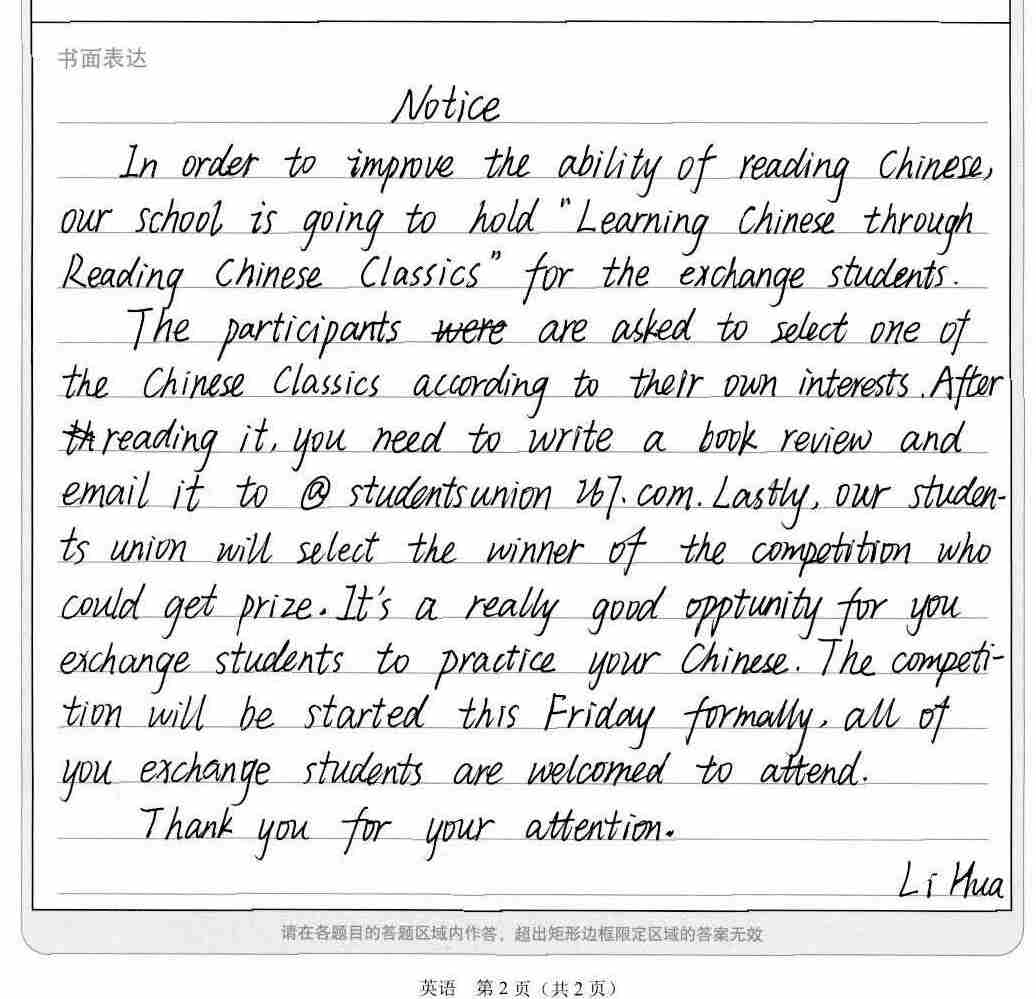 书面表达
Notice
In order to improve the ability of reading Chinese,
our school is going to hold "Learning Chinese through
Reading Chinese Classics" for the exchange students.
The participants were are asked to select one of
the Chinese Classics according to their own interests. After
th reading it, you need to write a book review and
email it to @ studentsunion 267. com. Lastly, our studen-
ts union will select the winner of the competition who
could get prize. It's a really good opptunity for you
exchange students to practice your Chinese. The competi-
tion will be started this Friday formally, all of
you exchange students are welcomed to attend.
Thank you for your attention.
Li Hua
请在各题目的答题区域内作答，超出矩形边框限定区域的答案无效
英语 第2页（共2页）